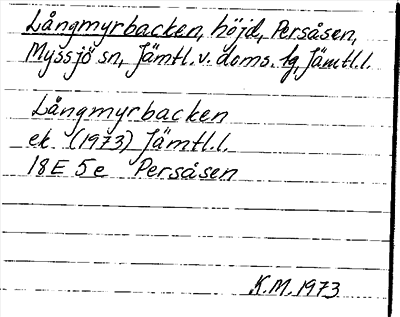 Långmyrbacken, höjd, Persåsen,
Myssjö sn, Jämtl. v. doms. tg, Jämtl. l.
Långmyrbacken
ek. (1973) Jämtl. l.
18E 5e Persåsen
K.M. 1973